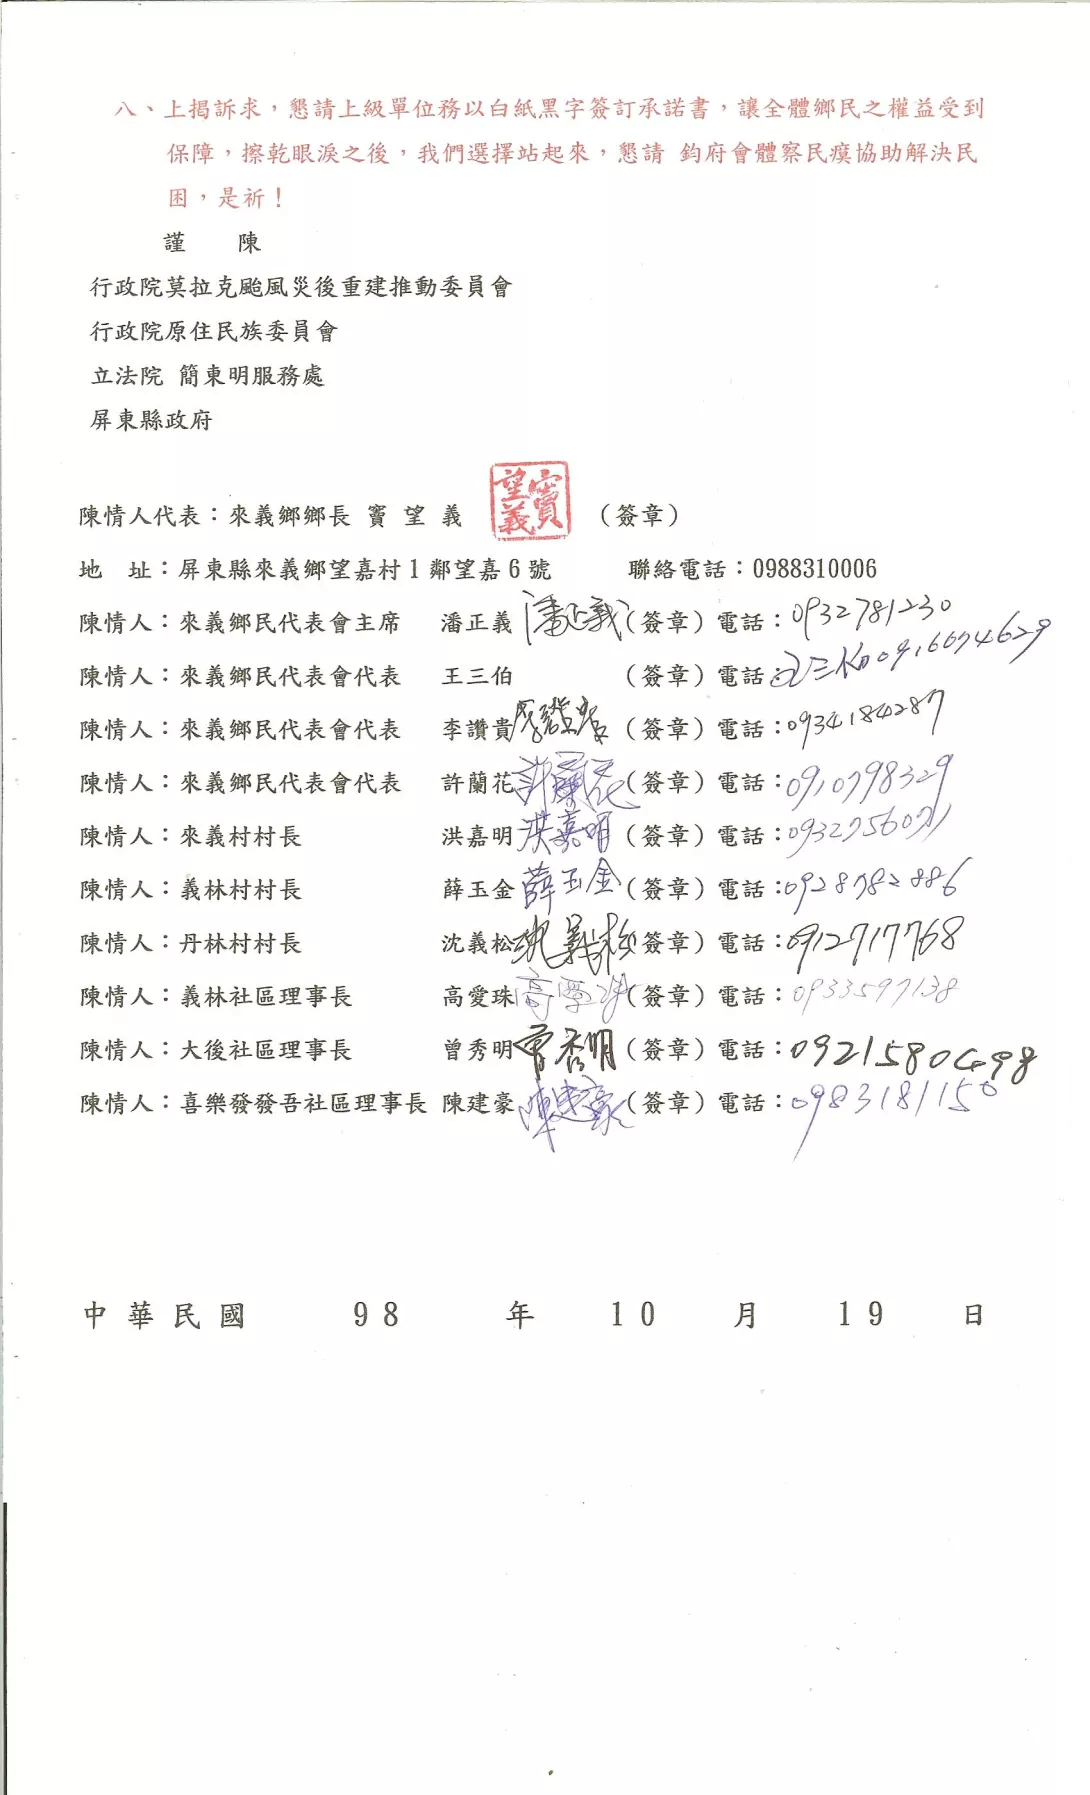 八、上揭訴求，懇請上級單位務以白紙黑字簽訂承諾書，讓全體鄉民之權益受到
保障，擦乾眼淚之後，我們選擇站起來，懇請 鈞府會體察民瘼協助解決民
困，是祈！
謹　陳
行政院莫拉克颱風災後重建推動委員會
行政院原住民族委員會
立法院 簡東明服務處
屏東縣政府
陳情人代表：來義鄉鄉長 竇 望 義 竇望義 （簽章）
地　址：屏東縣來義鄉望嘉村1鄰望嘉6號 聯絡電話：0988310006
陳情人：來義鄉民代表會主席 潘正義 潘正義（簽章）電話：0932781230
陳情人：來義鄉民代表會代表 王三伯 （簽章）電話：王三伯0916074629
陳情人：來義鄉民代表會代表 李讚貴 （簽章）電話：0934184287
陳情人：來義鄉民代表會代表 許蘭花 許蘭花（簽章）電話：0910798329
陳情人：來義村村長 洪嘉明 洪嘉明（簽章）電話：0932756071
陳情人：義林村村長 薛玉金 薛玉金（簽章）電話：0928782886
陳情人：丹林村村長 沈義松 沈義松（簽章）電話：0912717768
陳情人：義林社區理事長 高愛珠 高愛珠（簽章）電話：0933597138
陳情人：大後社區理事長 曾秀明 曾秀明（簽章）電話：0921580498
陳情人：喜樂發發吾社區理事長 陳建豪 陳建豪（簽章）電話：0983181150
中華民國 98 年 10 月 19 日